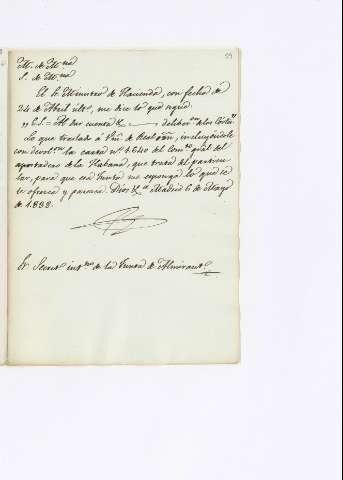 59
M. de M.na
S. de M.na
El S. Ministro de Hacienda, con fecha de
24 de Abril últo, me dice lo que sigue
"E.S. = Al dar cuenta &c. deliber.on de las Córtes"
Lo que traslado á de Real órn, incluyéndole
con devol.on la carta nº 1.640 del Com.te gral del
apostadero de la Habana, que trata del particu-
lar, para que esa Junta me esponga lo que se
le ofrezca y parezca. Dios &.a Madrid 6 de Mayo
de 1838.
Sr. Secret.o int.no de la Junta de Almirant.o